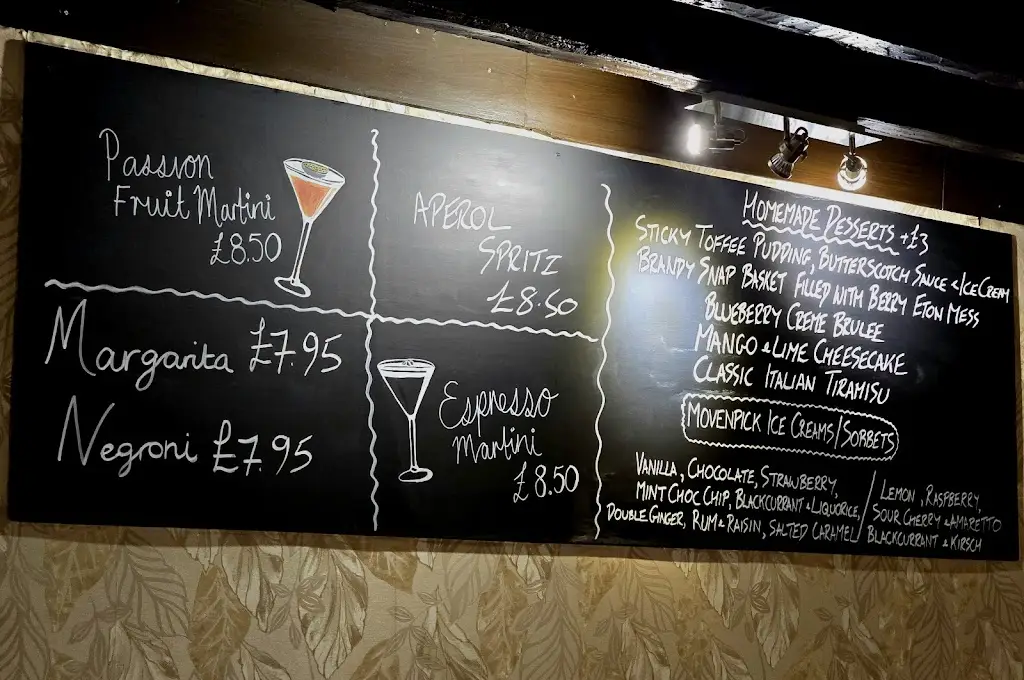 Passion
Fruit Martini
£8.50
Margarita £7.95
Negroni £7.95
APEROL
SPRITZ
£8.50
Espresso
Martini
£8.50
HOMEMADE DESSERTS +£3
STICKY TOFFEE PUDDING, BUTTERSCOTCH SAUCE + ICE CREAM
BRANDY SNAP BASKET FILLED WITH BERRY ETON MESS
BLUEBERRY CREME BRULEE
MANGO & LIME CHEESECAKE
CLASSIC ITALIAN TIRAMISU
MOVENPICK ICE CREAMS/SORBETS
VANILLA, CHOCOLATE, STRAWBERRY,
MINT CHOC CHIP, BLACKCURRANT & LIQUORICE,
DOUBLE GINGER, RUM & RAISIN, SALTED CARAMEL
LEMON, RASPBERRY,
SOUR CHERRY & AMARETTO
BLACKCURRANT & KIRSCH